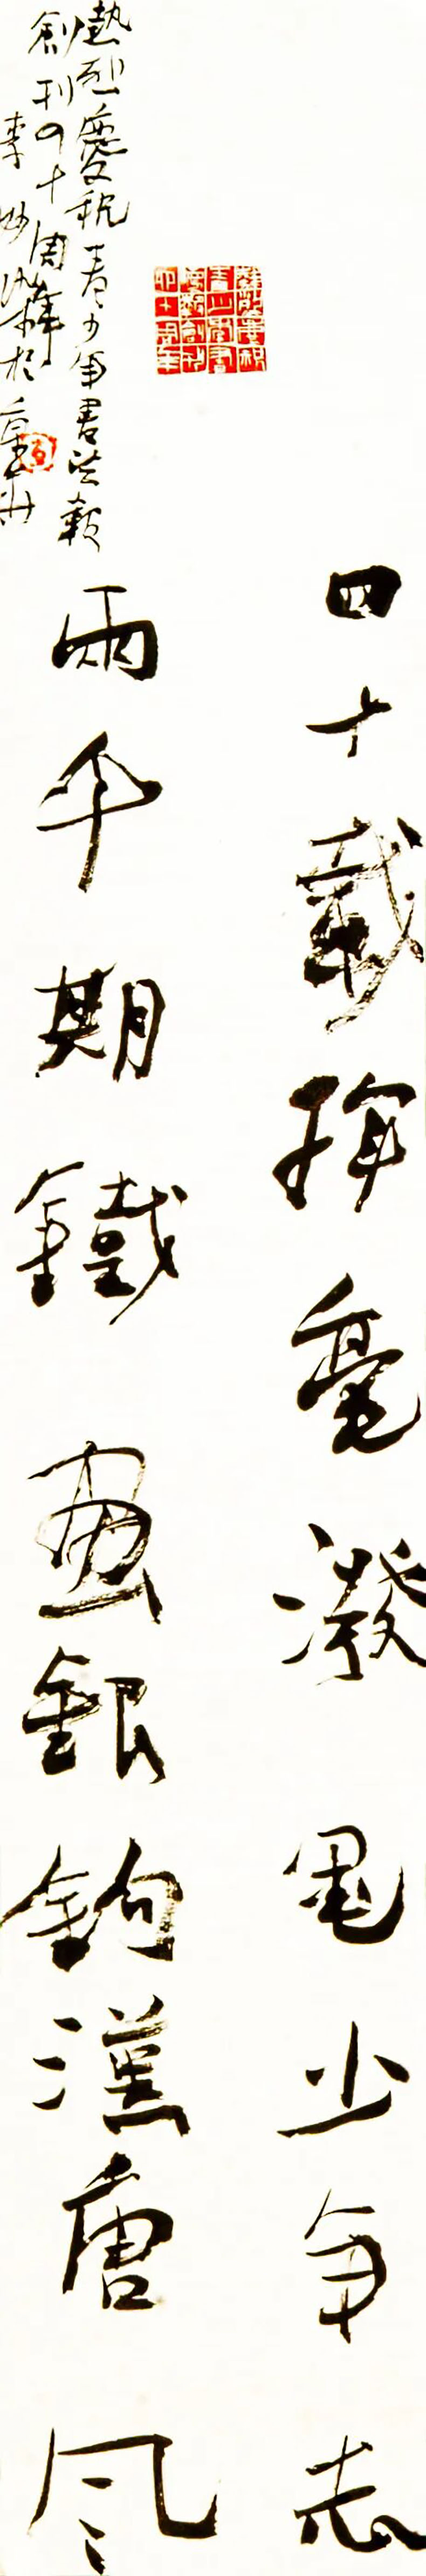 四十載揮毫潑墨少年志
兩千期鐵畫銀鉤漢唐风
熱烈慶祝青少年書法報
創刊四十周年
李 於京華
熱烈慶祝
青少年書
法報創刊
四十周年